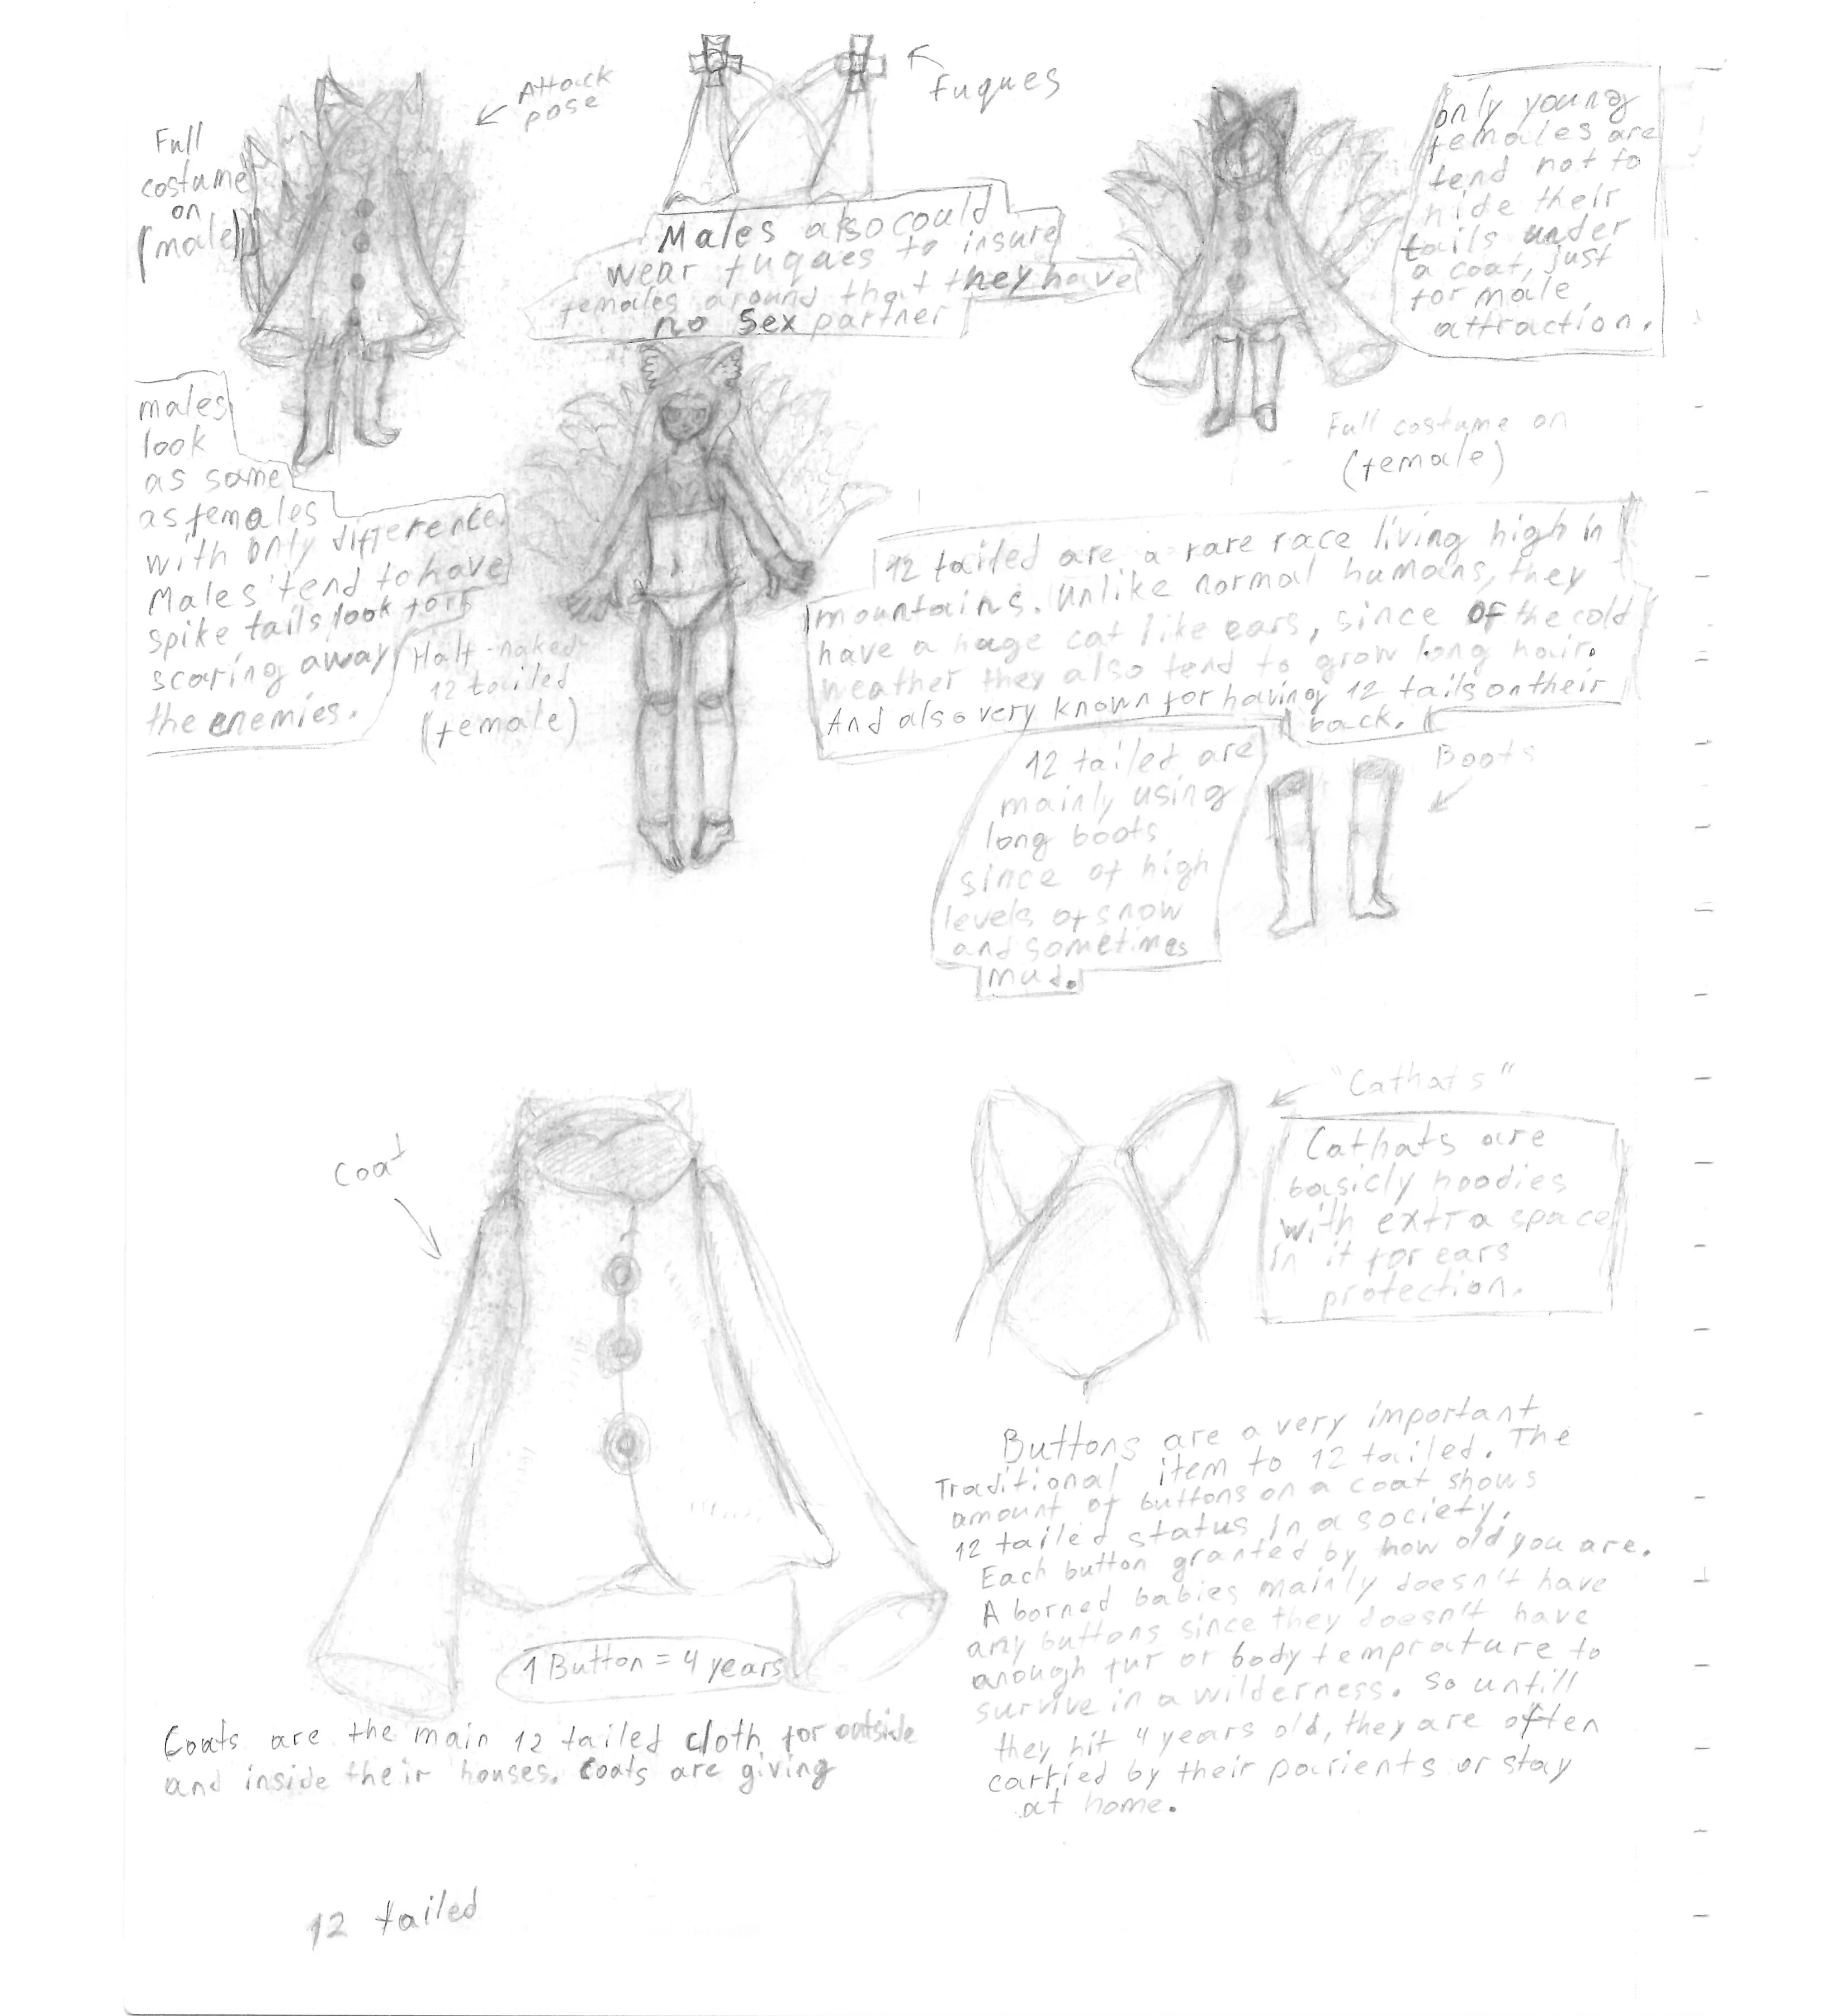 Full
costume
on
(male)
Attack
pose
Fuques
Males also could
wear fuques to insure
females around that they have
no sex partner
only young
females are
tend not to
hide their
tails under
a coat, just
for male
attraction.
Full costume on
(female)
males
look
as same
as females
with only difference.
Males tend to have
spike tails look for
scaring away
the enemies.
Half-naked
12 tailed
(female)
12 tailed are a rare race living high in
mountains. Unlike normal humans, they
have a huge cat like ears, since of the cold
weather they also tend to grow long hair.
And also very known for having 12 tails on their
back.
12 tailed are
mainly using
long boots
since of high
levels of snow
and sometimes
mud.
Boots
Coat
"Cathats"
Cathats are
basicly hoodies
with extra space
in it for ears
protection.
1 Button = 4 years
Coats are the main 12 tailed cloth for outside
and inside their houses. Coats are giving
Buttons are a very important
Traditional item to 12 tailed. The
amount of buttons on a coat shows
12 tailed status in a society.
Each button granted by how old you are.
A borned babies mainly doesn't have
any buttons since they doesn't have
anough fur or body temprature to
survive in a wilderness. So untill
they hit 4 years old, they are often
carried by their parients or stay
at home.
12 tailed